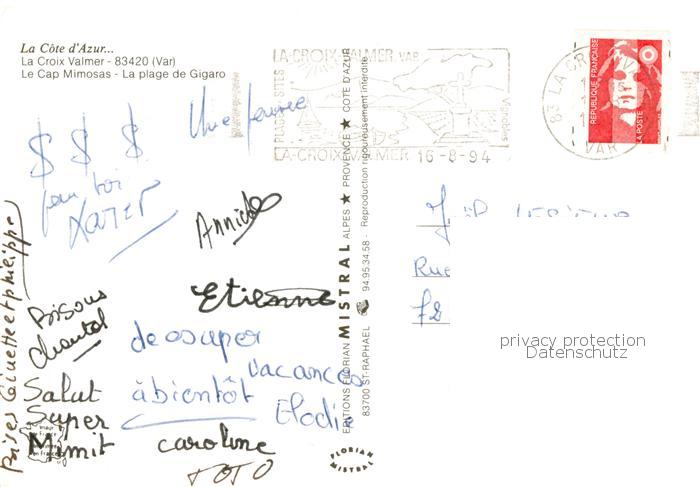 La Côte d'Azur...
La Croix Valmer - 83420 (Var)
Le Cap Mimosas - La plage de Gigaro
LA CROIX VALMER VAR
PLAGES SITES
Vignobles
LA-CROIX-VALMER 16-8-94
83 LA CROIX VALMER
VAR
REPUBLIQUE FRANÇAISE
LA POSTE
Une pensée
$ $ $
pour toi
XAVIER
Annick
Etienne
Bises Ginette et philippe
Bisous
Chantal
de super
vacances
à bientôt
Elodie
Salut
Super
Mimit
caroline
TOTO
EDITIONS FLORIAN MISTRAL ALPES ★ PROVENCE ★ COTE D'AZUR
83700 ST-RAPHAEL 94.95.34.58 - Reproduction rigoureusement interdite
FLORIAN
MISTRAL
Rue
privacy protection
Datenschutz